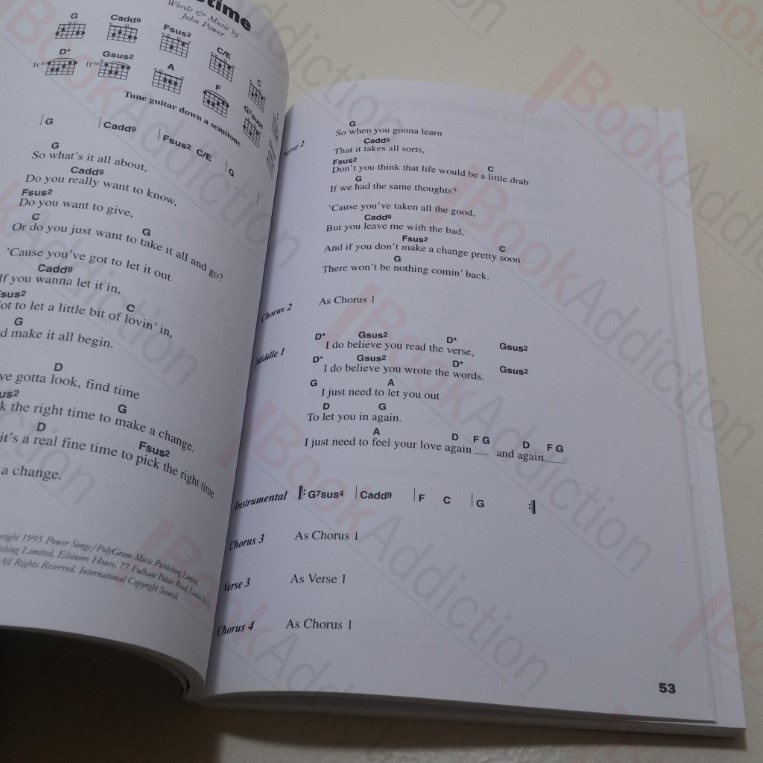 time
Words & Music by
John Power
G Cadd9 Fsus2 C/E C
D* Gsus2 A F G7sus4
fr fr
Tune guitar down a semitone
G Cadd9 Fsus2 C/E G
G
So what's it all about,
Cadd9
Do you really want to know,
Fsus2
Do you want to give,
C G
Or do you just want to take it all and go?
'Cause you've got to let it out
Cadd9
If you wanna let it in,
sus2 C
ot to let a little bit of lovin' in,
G
d make it all begin.
D
ve gotta look, find time
us2 G
k the right time to make a change.
D Fsus2
it's a real fine time to pick the right time
a change.
right 1995 Power Songs/PolyGram Music Publishing Limited,
shing Limited, Elsinore House, 77 Fulham Palace Road, London
All Rights Reserved. International Copyright Secured.
Verse 2
G
So when you gonna learn
Cadd9
That it takes all sorts,
Fsus2 C
Don't you think that life would be a little drab
G
If we had the same thoughts?
'Cause you've taken all the good,
Cadd9
But you leave me with the bad.
Fsus2 C
And if you don't make a change pretty soon
G
There won't be nothing comin' back.
Chorus 2 As Chorus 1
Middle 1
D* Gsus2 D* Gsus2
I do believe you read the verse,
D* Gsus2 D* Gsus2
I do believe you wrote the words.
G A
I just need to let you out
D G
To let you in again.
A D F G D F G
I just need to feel your love again __ and again.__
Instrumental |: G7sus4 | Cadd9 | F C | G :|
Chorus 3 As Chorus 1
Verse 3 As Verse 1
Chorus 4 As Chorus 1
53
BookAddiction
BookAddiction
BookAddiction
BookAddiction
BookAddiction
BookAddiction